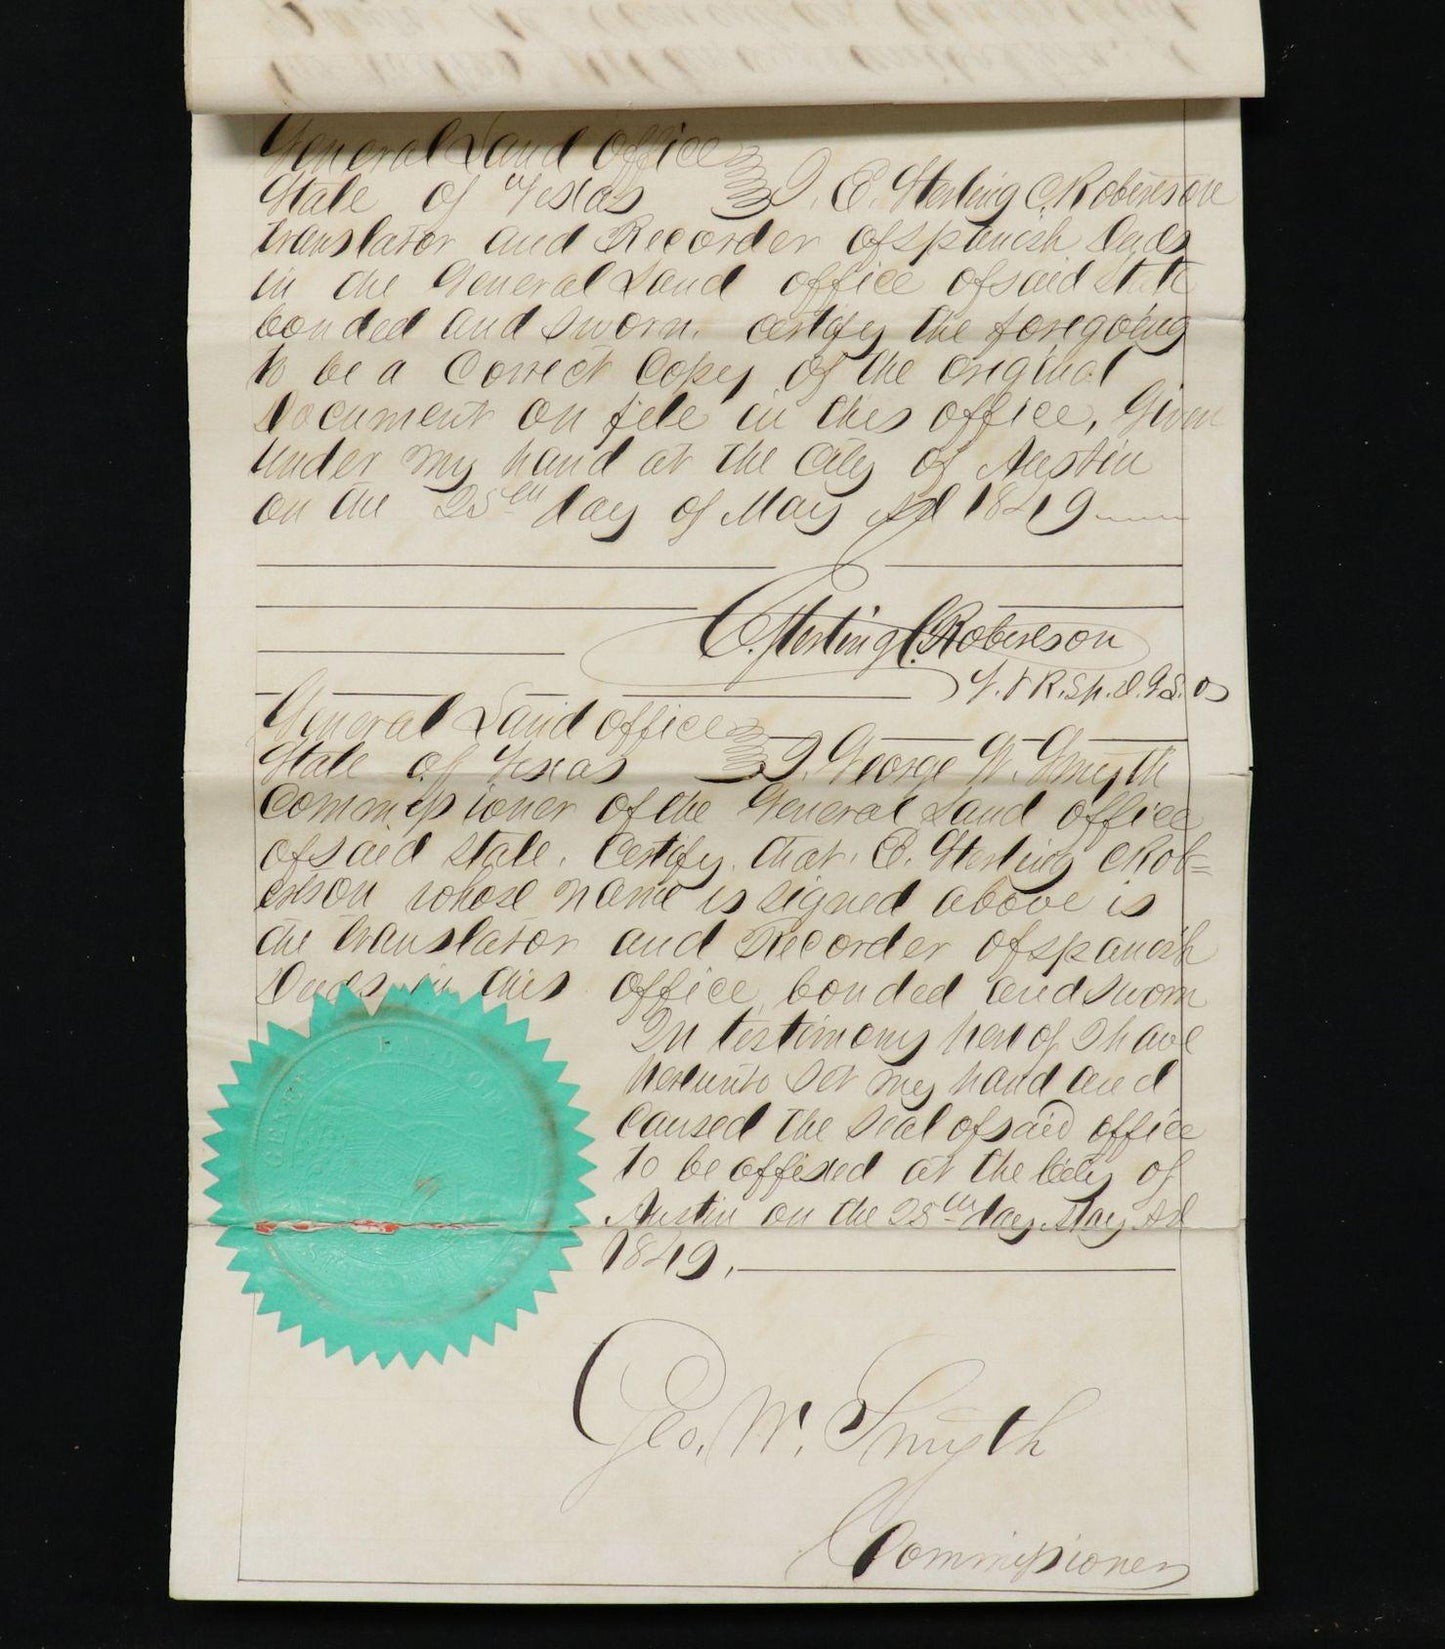 General Land office
State of Texas I. E. Sterling C. Robertson
translator and Recorder of spanish Deeds
in the General Land office of said state
bonded and sworn. certify the foregoing
to be a Correct Copy of the original
Document on file in this office, Given
under my hand at the City of Austin
on the 25th day of May AD 1849
E. Sterling C. Robertson
T. & R. Sp. D. G. L. O
General Land office
State of Texas I. George W. Smyth
Commissioner of the General Land office
of said state. Certify. that. E. Sterling C Rob=
ertson whose name is signed above is
the translator and Recorder of spanish
Deeds in this office, bonded and sworn
In testimony hereof I have
hereunto set my hand and
caused the seal of said office
to be affixed at the City of
Austin on the 25th day May AD
1849,
Geo. W. Smyth
Commissioner